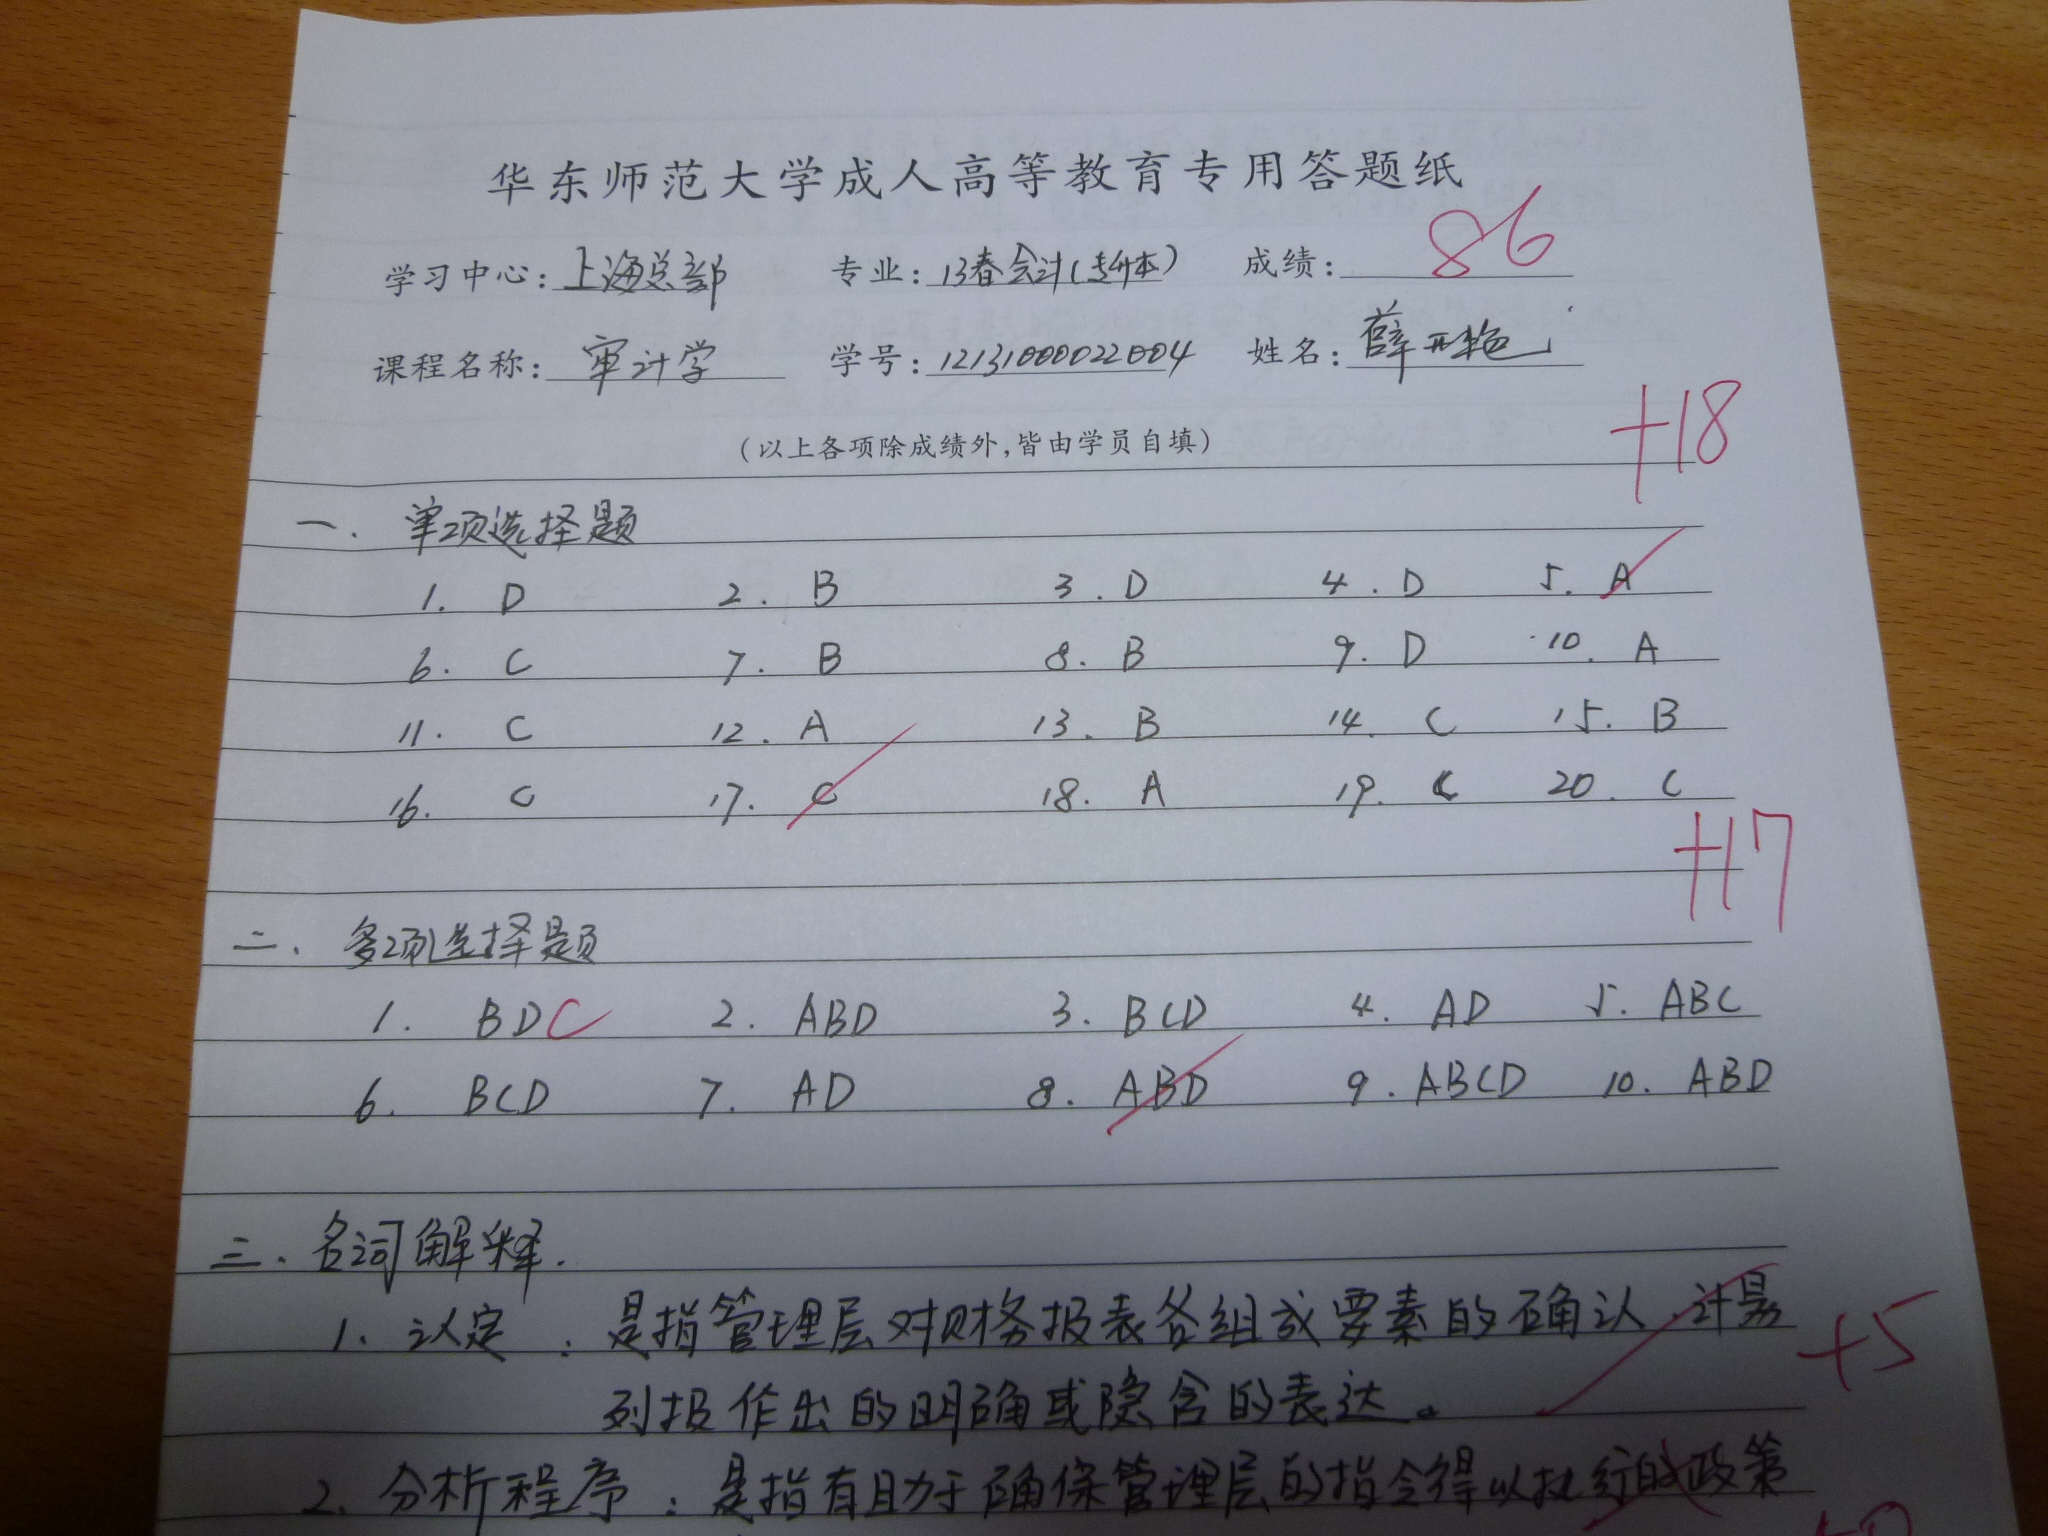 华东师范大学成人高等教育专用答题纸
学习中心：上海总部 专业：13春会计（专升本） 成绩：86
课程名称：审计学 学号：12131000022004 姓名：薛
（以上各项除成绩外，皆由学员自填）
+18
一. 单项选择题
1. D 2. B 3. D 4. D 5. A
6. C 7. B 8. B 9. D 10. A
11. C 12. A 13. B 14. C 15. B
16. C 17. C 18. A 19. C 20. C
+17
二. 多项选择题
1. BDC 2. ABD 3. BCD 4. AD 5. ABC
6. BCD 7. AD 8. ABD 9. ABCD 10. ABD
三. 名词解释.
1. 认定：是指管理层对财务报表各组成要素的确认、计量
+5
列报作出的明确或隐含的表达。
2. 分析程序：是指有助于确保管理层的指令得以执行的政策